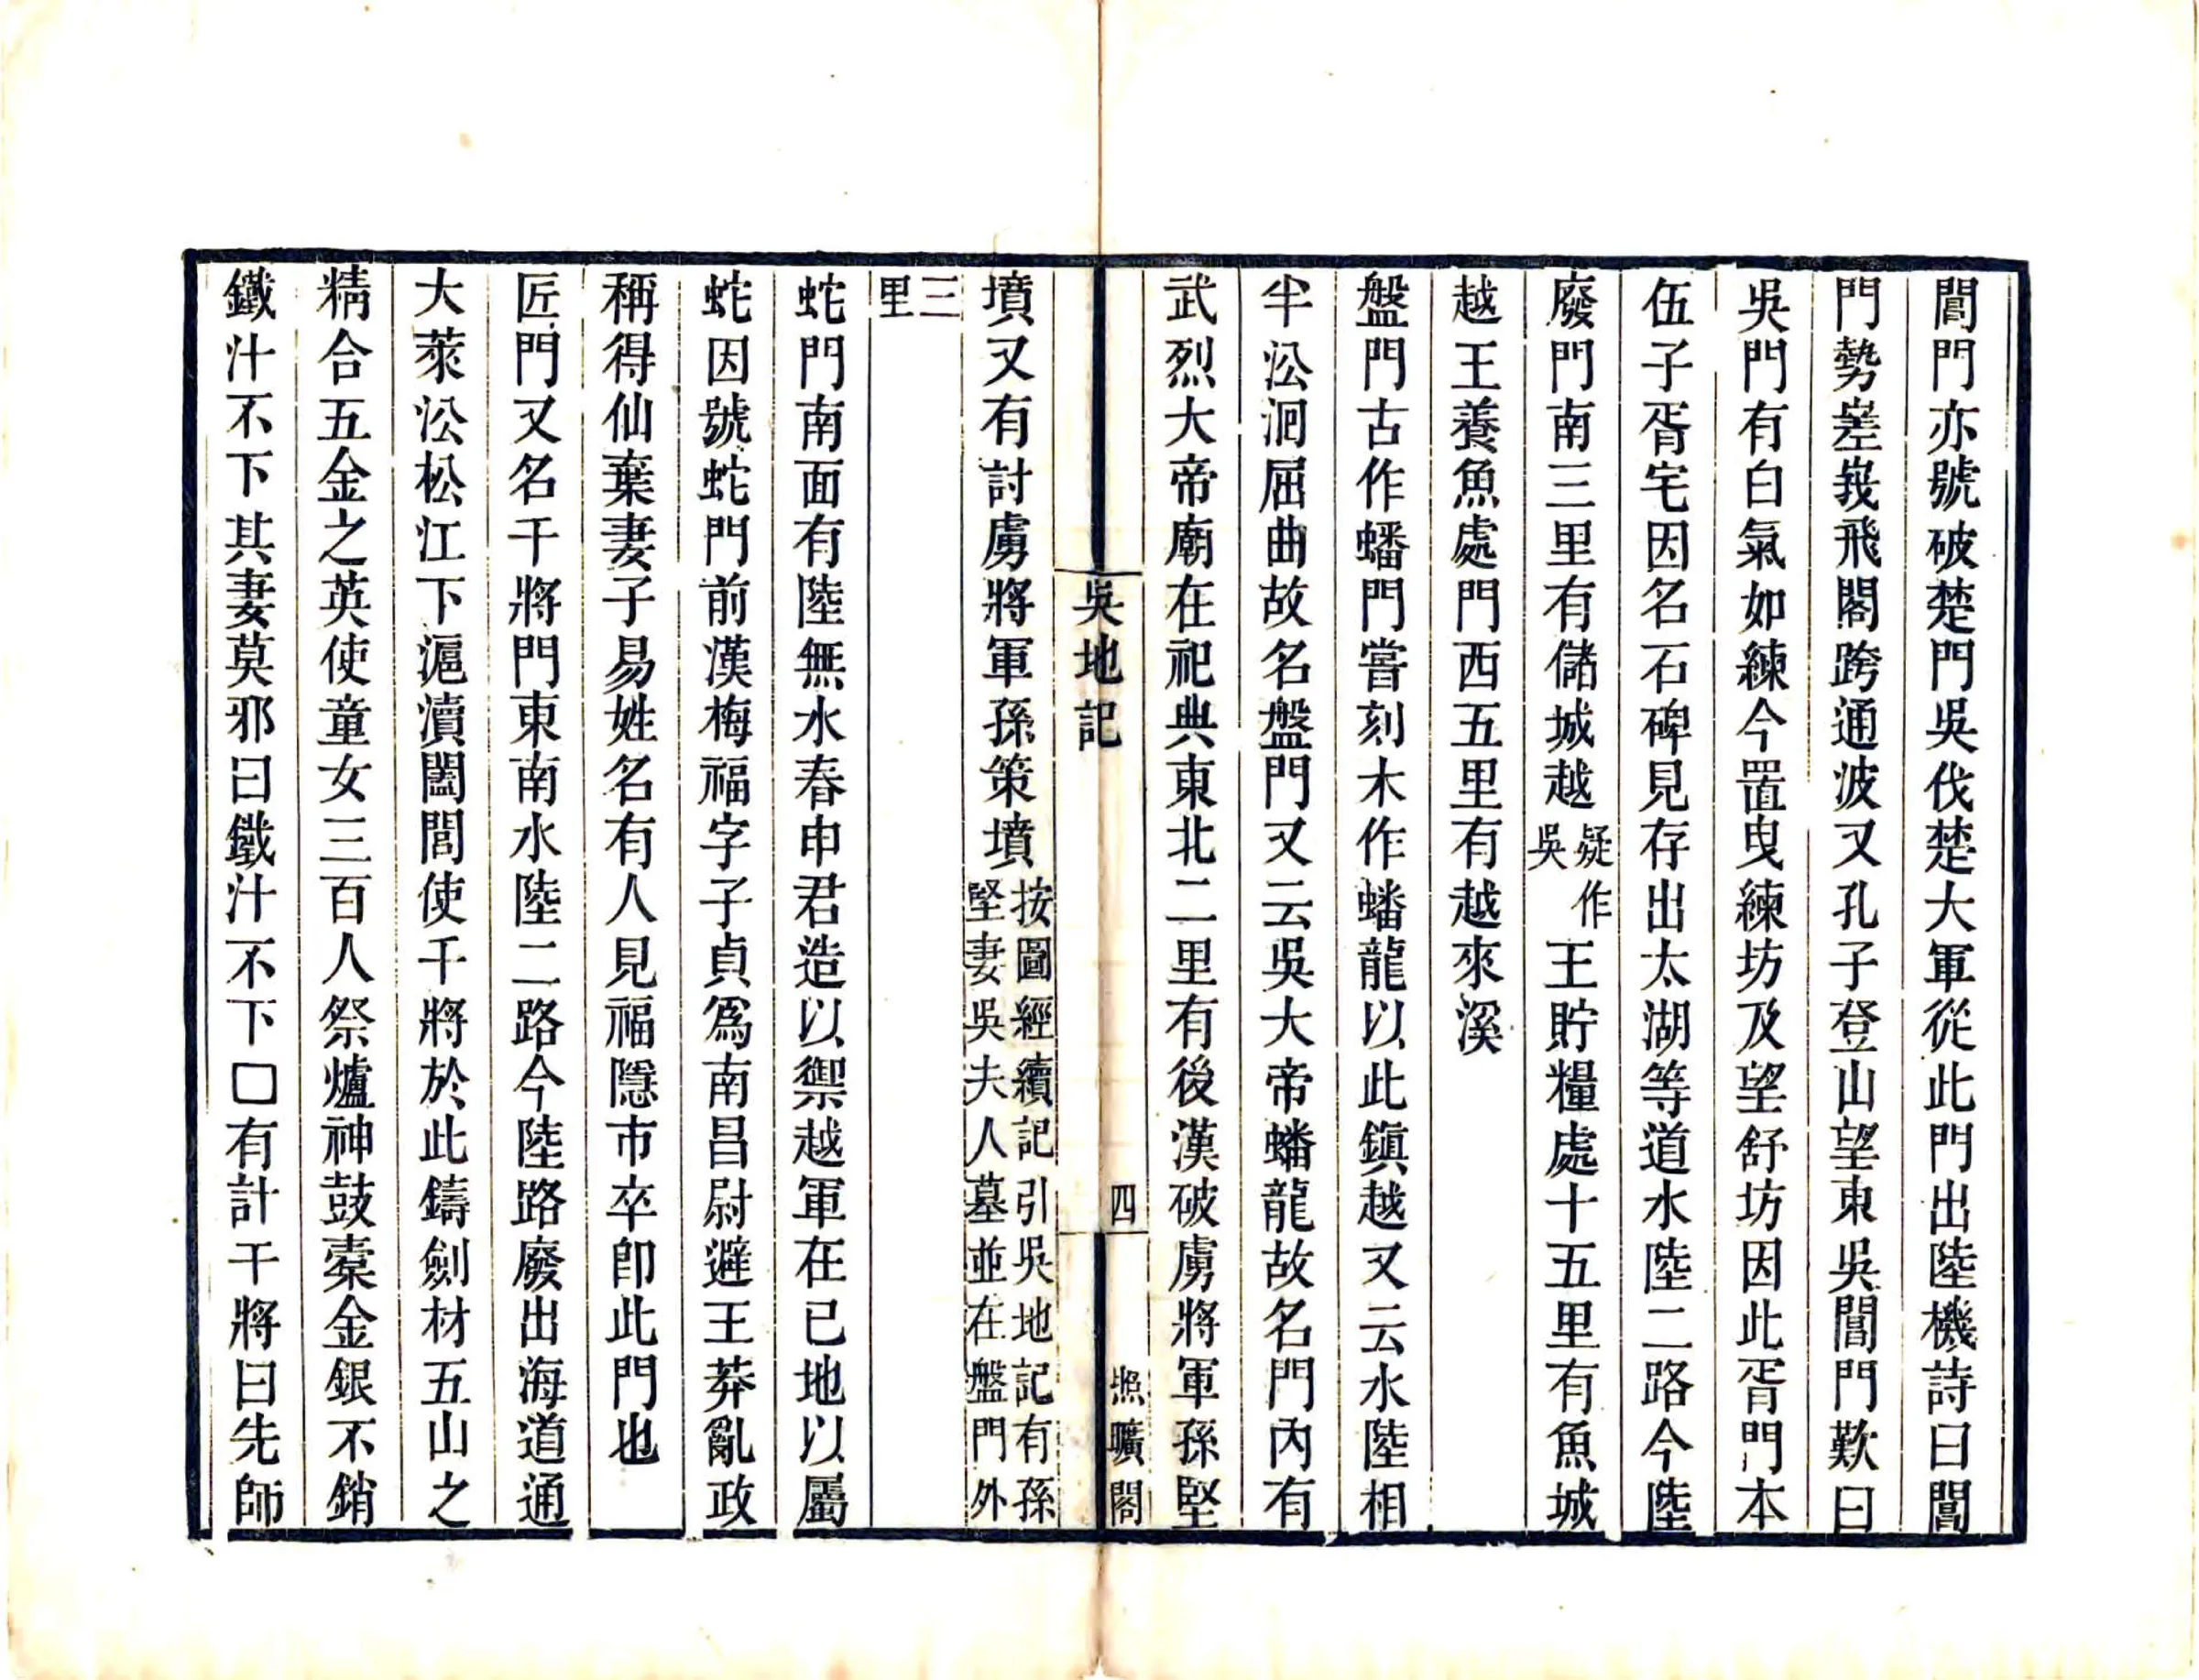 閶門亦號破楚門吳伐楚大軍從此門出陸機詩曰閶
門勢嵳峩飛閣跨通波又孔子登山望東吳閶門歎曰
吳門有白氣如練今置曳練坊及望舒坊因此胥門本
伍子胥宅因名石碑見存出太湖等道水陸二路今陸
廢門南三里有儲城越疑作吳王貯糧處十五里有魚城
越王養魚處門西五里有越來溪
盤門古作蟠門嘗刻木作蟠龍以此鎮越又云水陸相
半㳂洄屈曲故名盤門又云吳大帝蟠龍故名門內有
武烈大帝廟在祀典東北二里有後漢破虜將軍孫堅
吳地記
四
照曠閣
墳又有討虜將軍孫策墳按圖經續記引吳地記有孫堅妻吳夫人墓並在盤門外
三里
蛇門南面有陸無水春申君造以禦越軍在巳地以屬
蛇因號蛇門前漢梅福字子貞爲南昌尉避王莽亂政
稱得仙棄妻子易姓名有人見福隱市卒卽此門也
匠門又名干將門東南水陸二路今陸路廢出海道通
大萊㳂松江下滬瀆闔閭使干將於此鑄劍材五山之
精合五金之英使童女三百人祭爐神鼓橐金銀不銷
鐵汁不下其妻莫邪曰鐵汁不下□有計干將曰先師